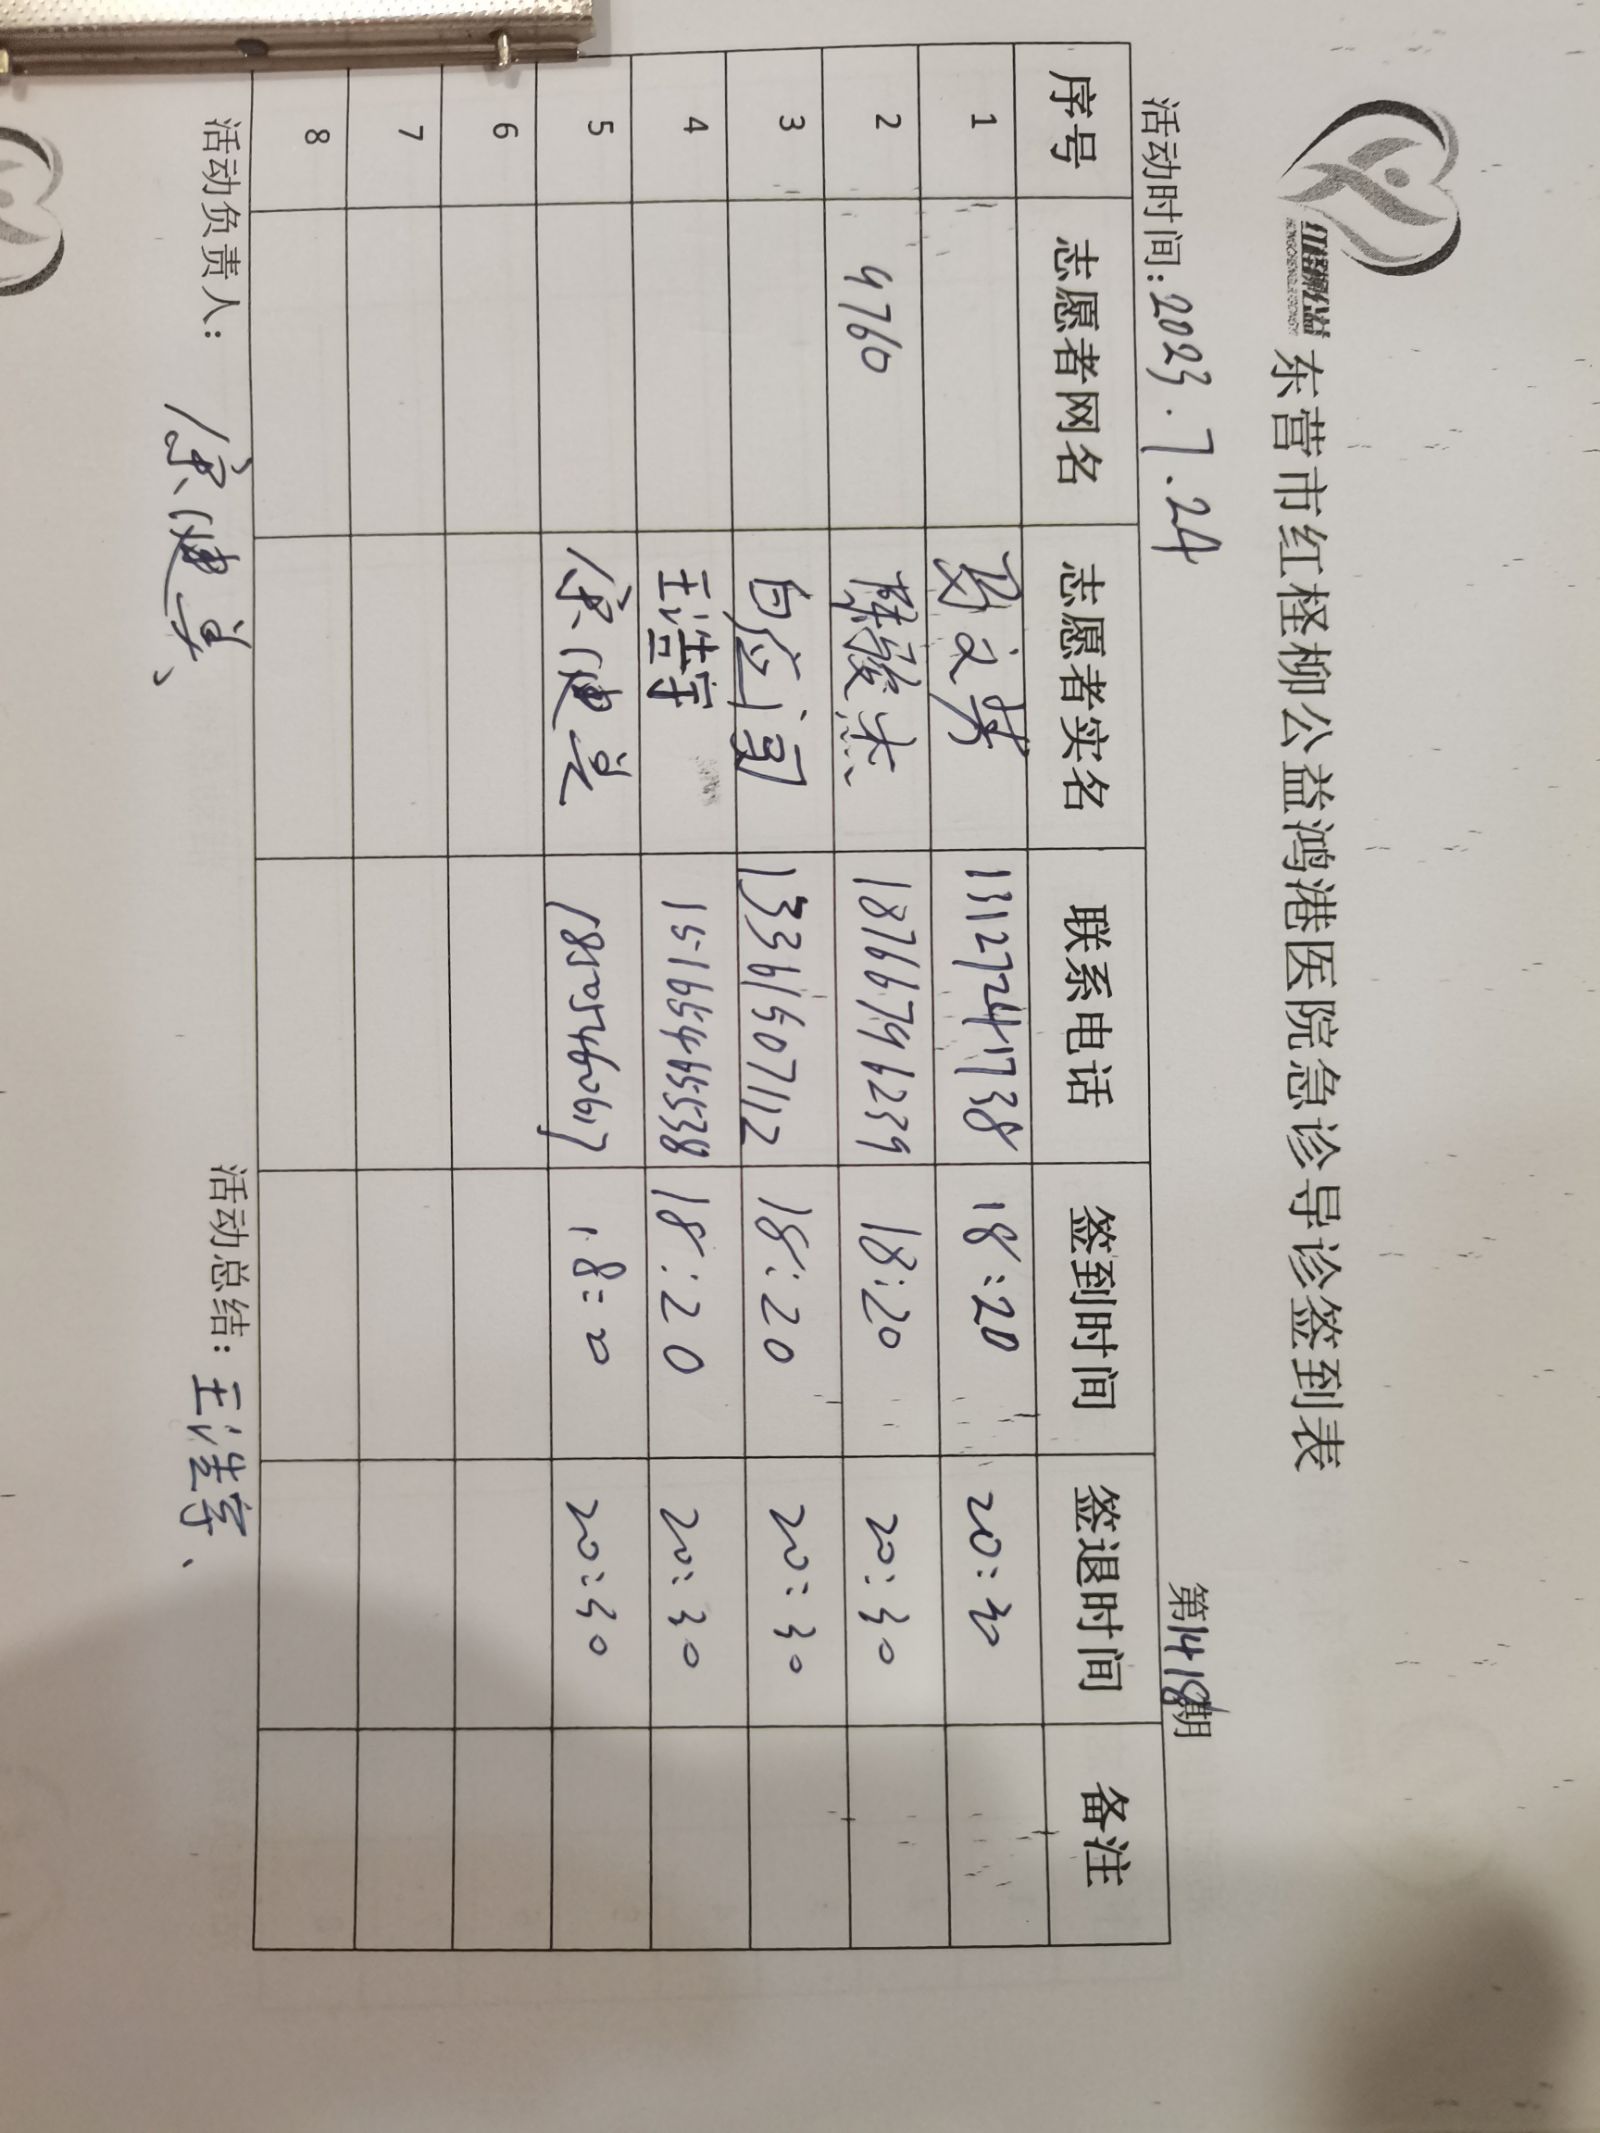 红柽柳公益
东营市红柽柳公益鸿港医院急诊导诊签到表
活动时间:2023.7.24 第1418期
序号 志愿者网名 志愿者实名 联系电话 签到时间 签退时间 备注
1 文 13127241738 18:20 20:30
2 9760 陈骏杰 18766796239 18:20 20:30
3 13361507112 18:20 20:30
4 王浩宇 15165465538 18:20 20:30
5 18505460617 18:20 20:30
6
7
8
活动负责人: 活动总结:王浩宇、